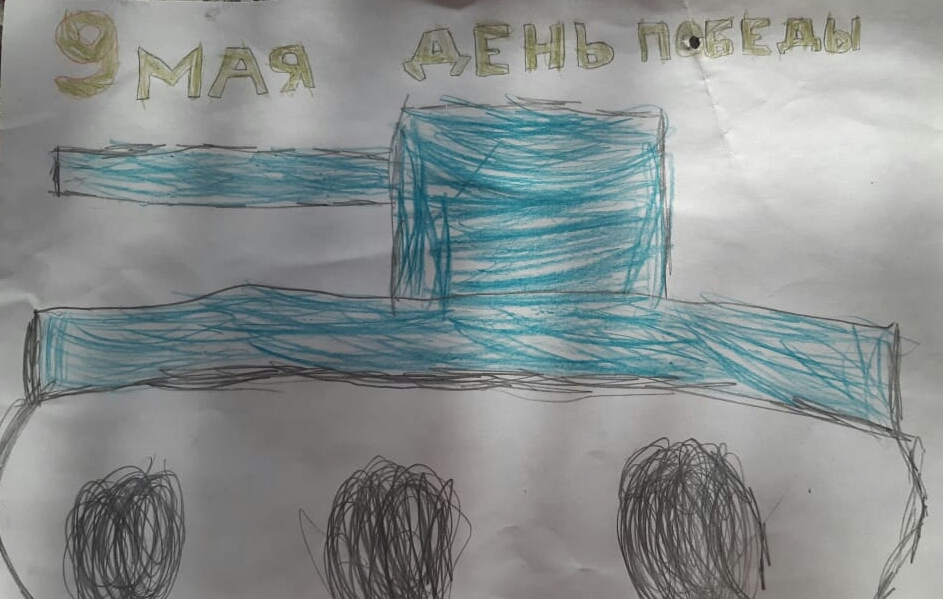 9 МАЯ ДЕНЬ ПОБЕДЫ